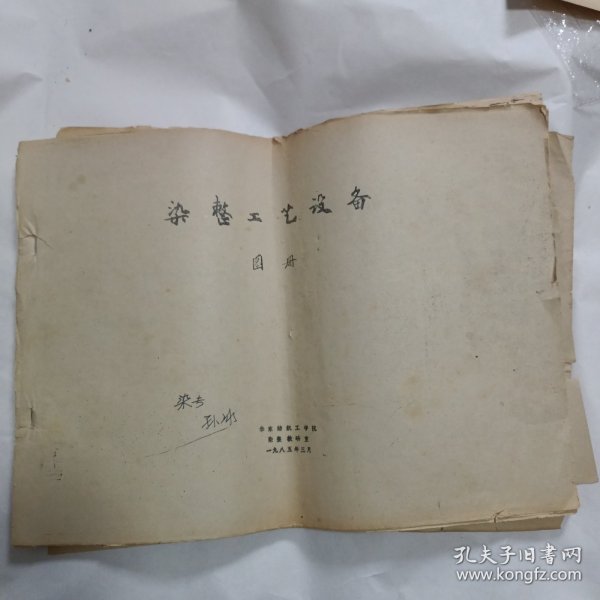 染整工艺设备
图册
染专
孙冰
华东纺织工学院
染整教研室
一九八五年三月
孔夫子旧书网
www.kongfz.com